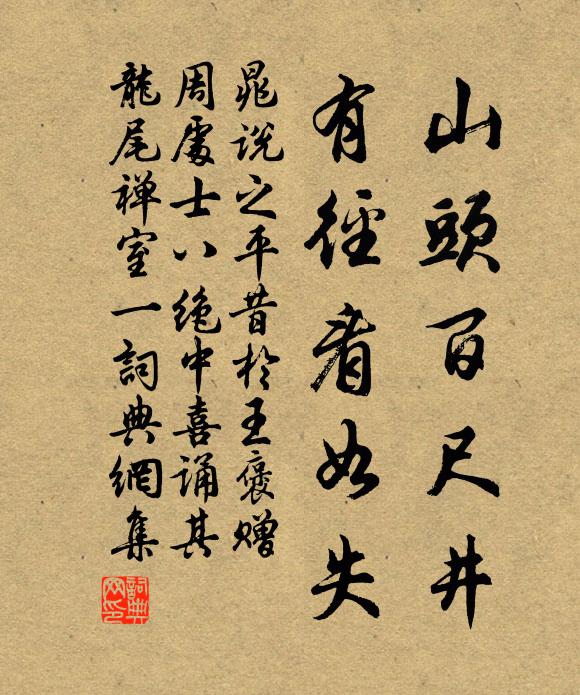 山頭百尺井
有徑看如失
晁說之平昔於王褒贈
周處士八絶中喜誦其
龍尾禅室一詞典網集
詞典網印